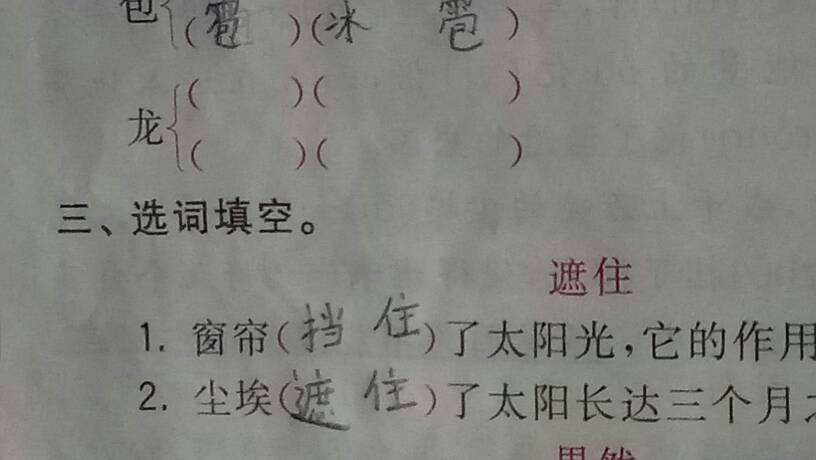 包{(雹)(冰雹)
龙{( )( )
( )( )
三、选词填空。
遮住
1. 窗帘(挡住)了太阳光,它的作用
2. 尘埃(遮住)了太阳长达三个月之
果然